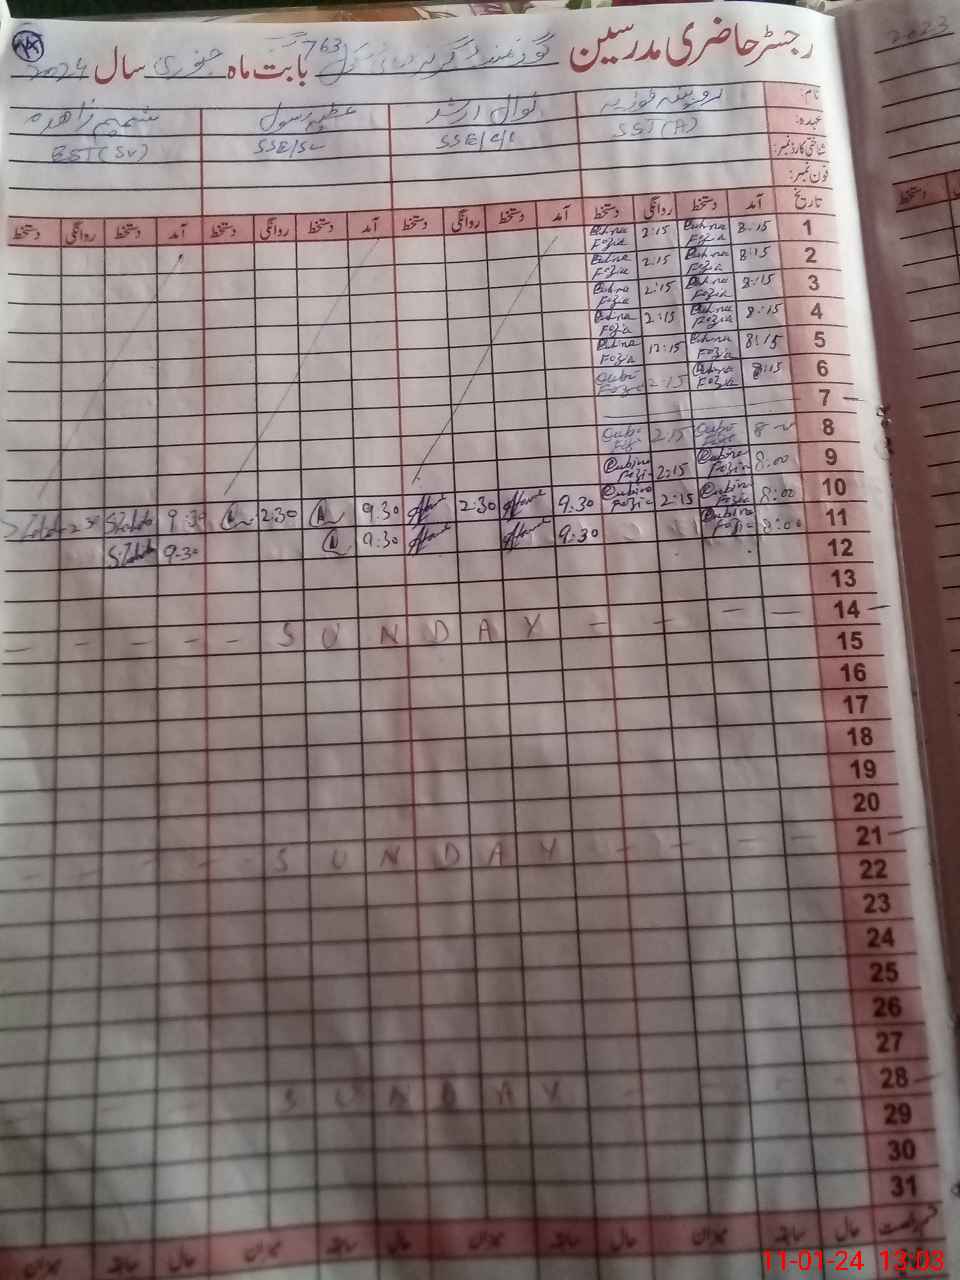 رجسٹر حاضری مدرسین گورنمنٹ گرلز ہائی سکول 763 گ ب بابت ماہ جنوری سال 2024
2023
نام: روبینہ فوزیہ نوال ارشد عطیہ رسول شمیم زاھدہ
عہدہ: SST(A) SSE/C/C SSE/Sc EST(Sv)
شناختی کارڈ نمبر:
فون نمبر:
تاریخ آمد دستخط روانگی دستخط آمد دستخط روانگی دستخط آمد دستخط روانگی دستخط آمد دستخط روانگی دستخط
دستخط
1 8:15 Rubina Fozia 2:15 Rubina Fozia
2 8:15 Rubina Fozia 2:15 Rubina Fozia
3 8:15 Rubina Fozia 2:15 Rubina Fozia
4 8:15 Rubina Fozia 2:15 Rubina Fozia
5 8:15 Rubina Fozia 12:15 Rubina Fozia
6 8:15 Rubina Fozia 2:15 Rubina Fozia
7
8 8 2:15
9 8:00 Rubina Fozia 2:15 Rubina Fozia
10 8:00 Rubina Fozia 2:15 Rubina Fozia 9:30 2:30 9:30 2:30 9:30 S.Zahida
11 8:00 Rubina Fozia 9:30 9:30 9:30 S.Zahida
12
13
14 - - - - SUNDAY - - - - -
15
16
17
18
19
20
21 - - - - - SUNDAY - - - -
22
23
24
25
26
27
28 - SUNDAY - - -
29
30
31
قسم رخصت حال سابقہ میزان حال سابقہ میزان حال سابقہ میزان حال سابقہ میزان
11-01-24 13:03